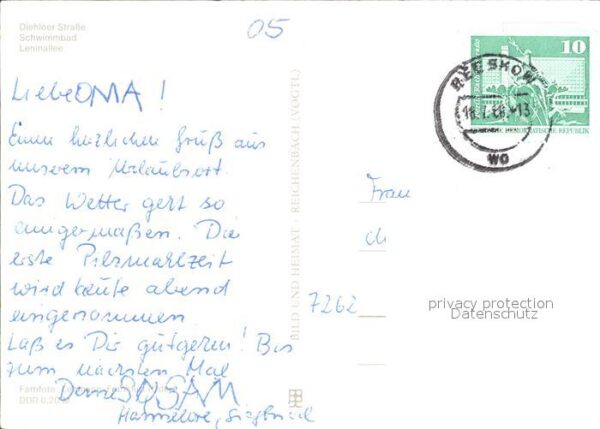 Diehloer Straße
Schwimmbad
Leninallee
05
10
BEESKOW
WO
DEMOKRATISCHE REPUBLIK
Liebe OMA !
Einen herzlichen Gruß aus
unserem Urlaubsort.
Das Wetter geht so
einigermaßen. Die
erste Pilzmahlzeit
wird heute abend
eingenommen.
Laß es Dir gutgehen! Bis
zum nächsten Mal
Deine SUSANN
Hannelore, Siegfried
BILD UND HEIMAT · REICHENBACH (VOGTL)
Frau
7262
privacy protection
Datenschutz
Farbfoto
DDR 0,20